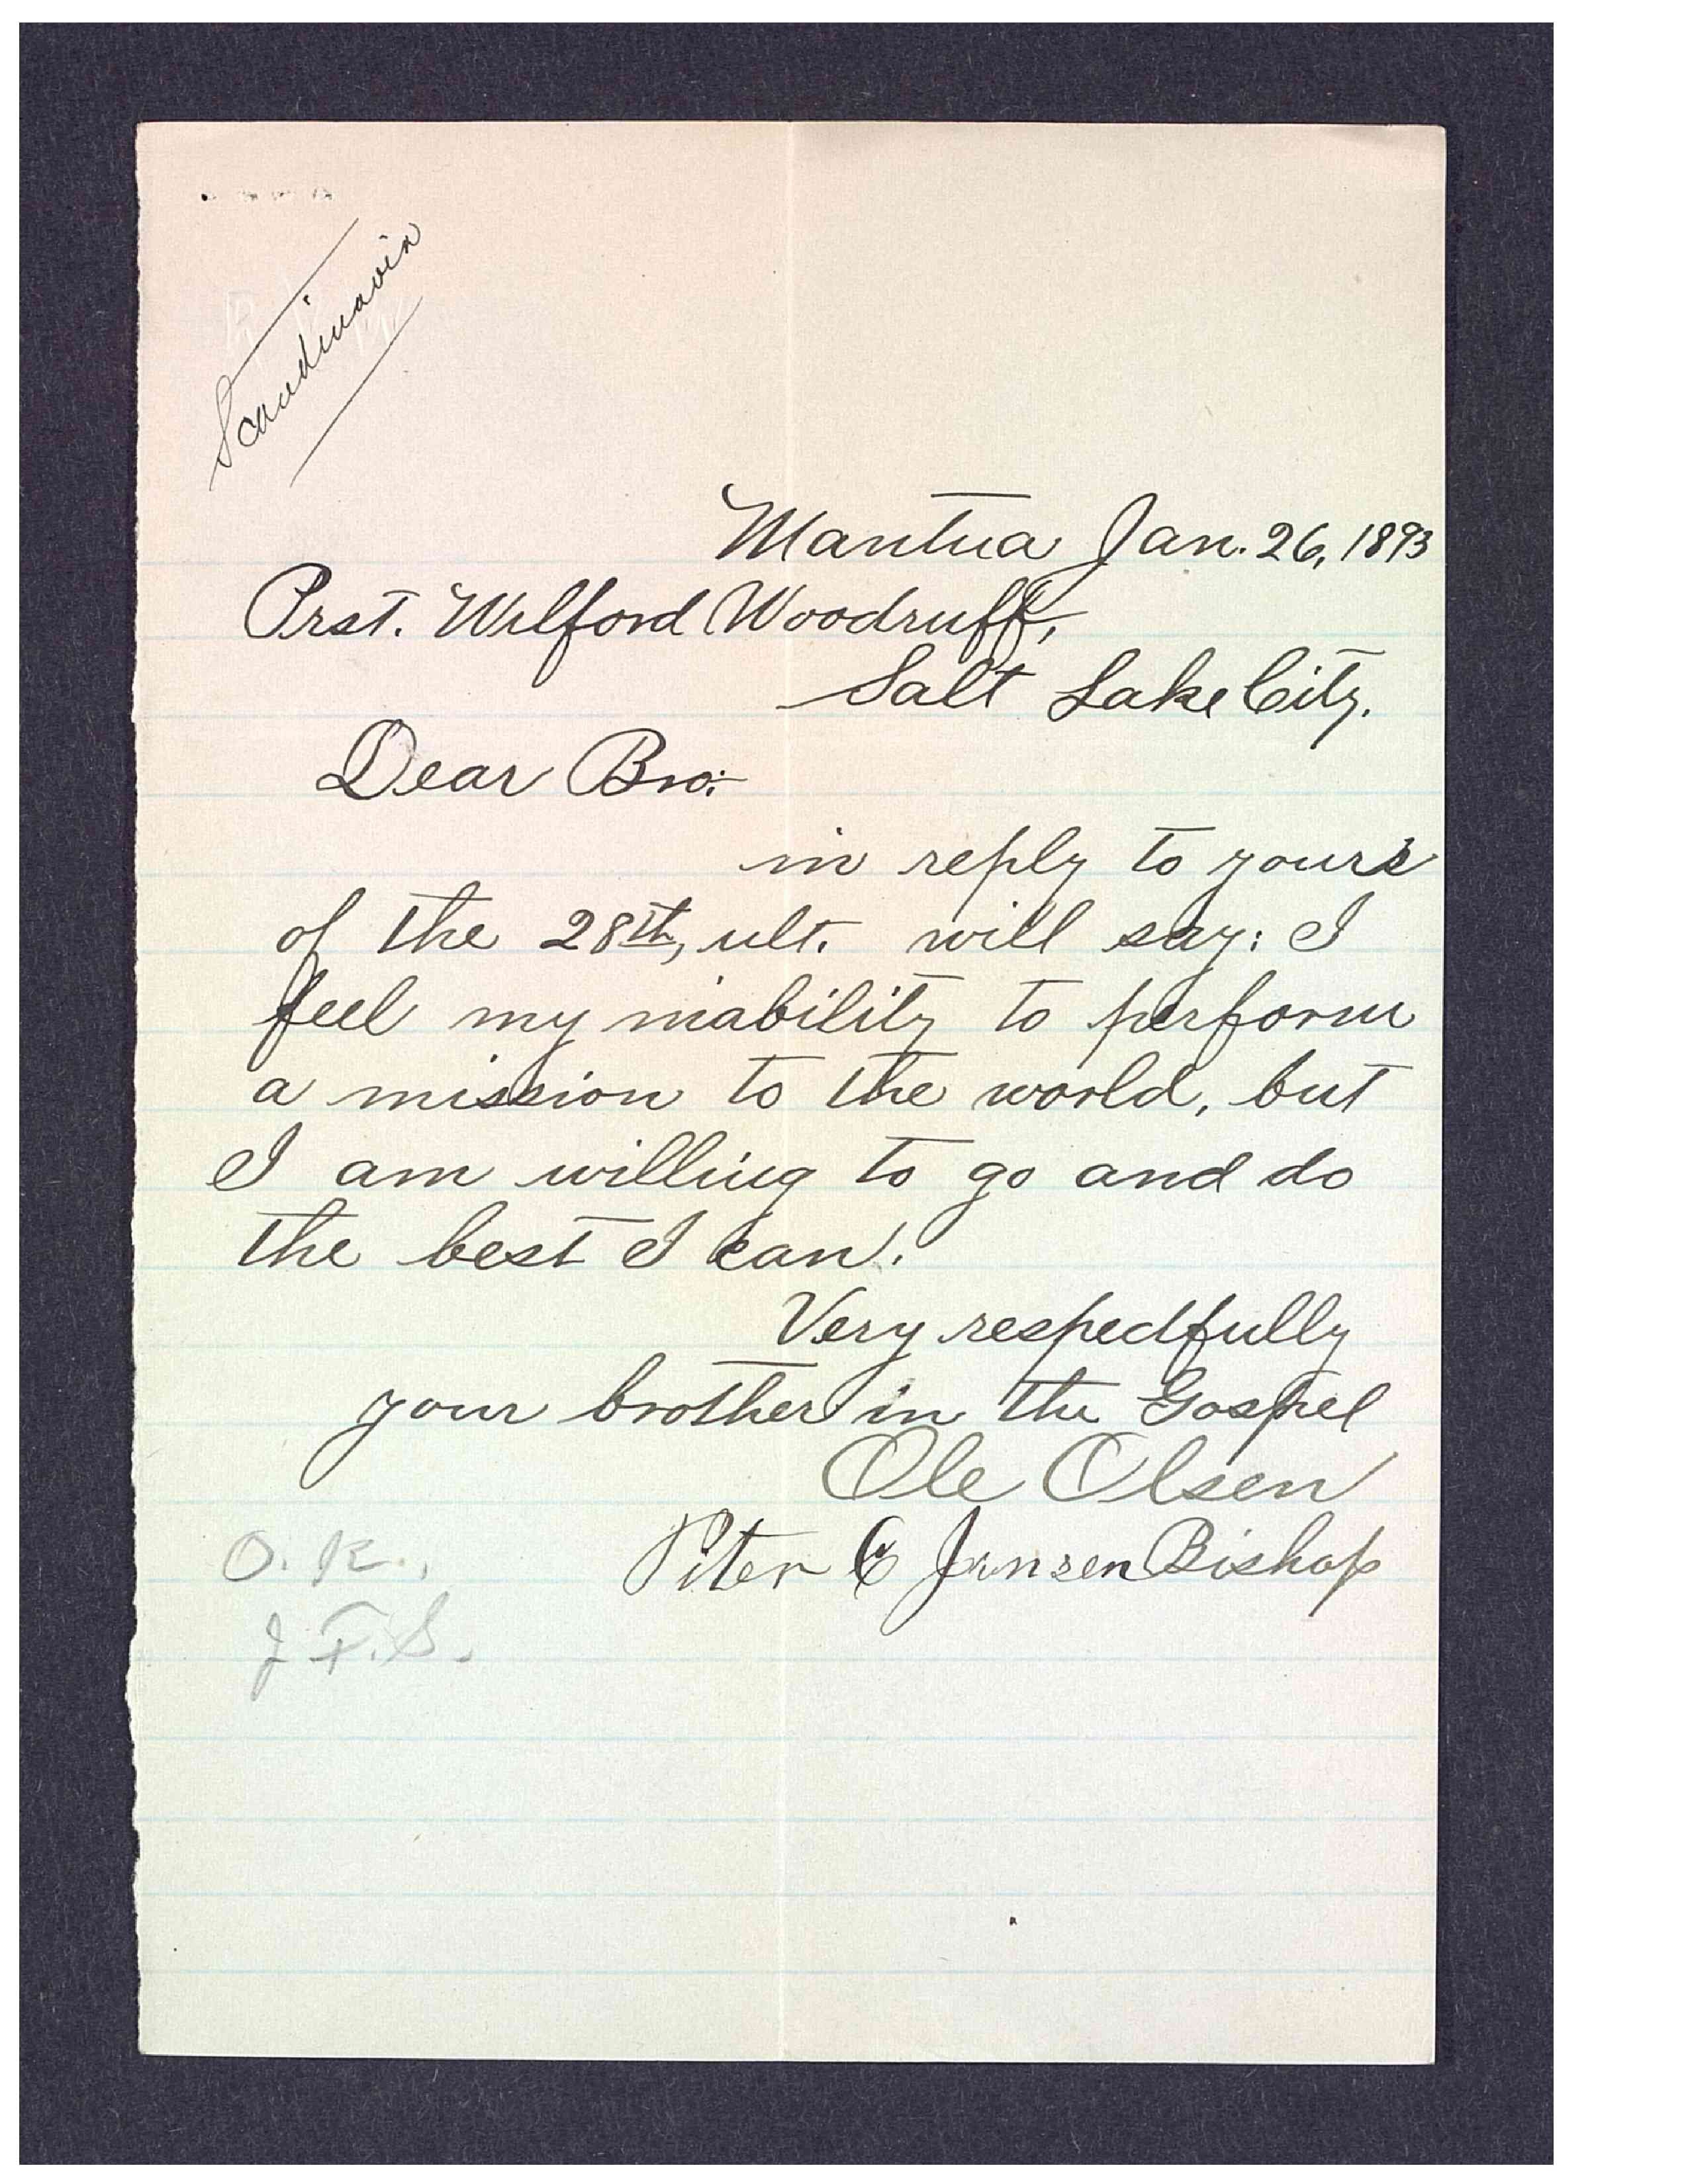 Scandinavia
Mantua Jan. 26, 1893
Prst. Wilford Woodruff,
Salt Lake City.
Dear Bro:-
in reply to yours
of the 28th, ult. will say: I
feel my inability to perform
a mission to the world, but
I am willing to go and do
the best I can.
Very respectfully
your brother in the Gospel
Ole Olsen
Peter C Jensen Bishop
O. K.,
J. F. S.